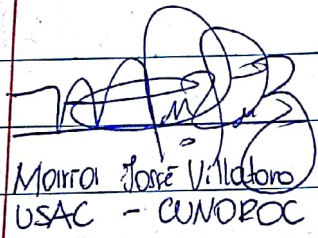 María José Villatoro
USAC - CUNOROC